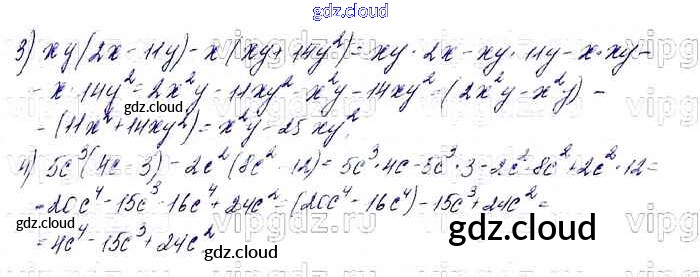 gdz.cloud
3) xy(2x-11y)-x(xy+14y²)=xy·2x-xy·11y-x·xy-
-x·14y²=2x²y-11xy²-x²y-14xy²=(2x²y-x²y)-
-(11x²+14xy²)=x²y-25xy².
4) 5c³(4c-3)-2c²(8c²-12)=5c³·4c-5c³·3-2c²·8c²+2c²·12=
=20c⁴-15c³-16c⁴+24c²=(20c⁴-16c⁴)-15c³+24c²=
=4c⁴-15c³+24c²
gdz.cloud
gdz.cloud
gdz.cloud
gdz.cloud
gdz.cloud